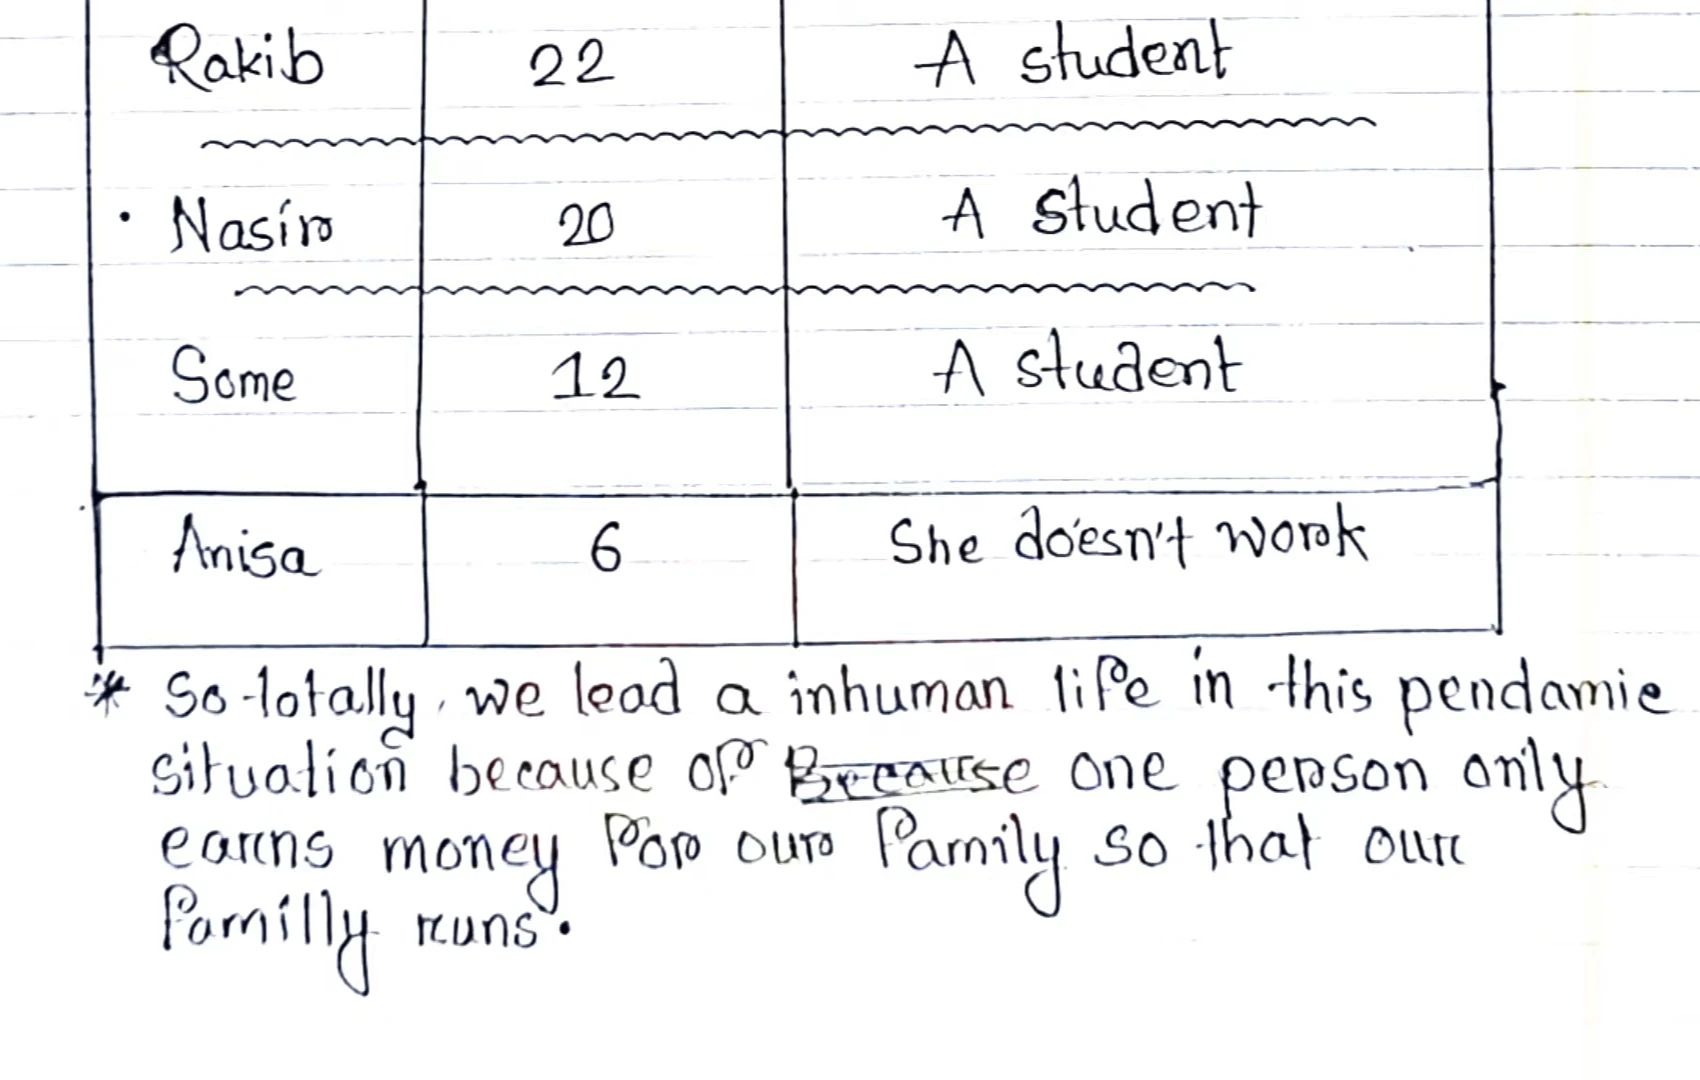 Rakib 22 A student
Nasir 20 A student
Some 12 A student
Anisa 6 She doesn't work
* So totally, we lead a inhuman life in this pendamic
situation because of Because one person only
earns money for our family so that our
familly runs.